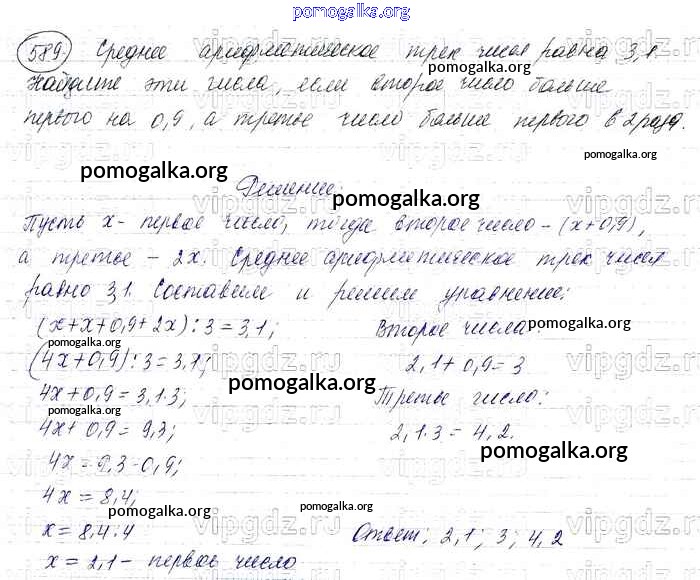 pomogalka.org
589. Среднее арифметическое трех чисел равно 3,1.
Найдите эти числа, если второе число больше
первого на 0,9, а третье число больше первого в 2 раза.
Решение:
Пусть x - первое число, тогда второе число - (x+0,9),
а третье - 2x. Среднее арифметическое трех чисел
равно 3,1. Составим и решим уравнение:
(x+x+0,9+2x):3=3,1;
(4x+0,9):3=3,1;
4x+0,9=3,1·3;
4x+0,9=9,3;
4x=9,3-0,9;
4x=8,4;
x=8,4:4
x=2,1 - первое число
Второе число:
2,1+0,9=3
Третье число:
2,1·3=4,2.
Ответ: 2,1; 3; 4,2